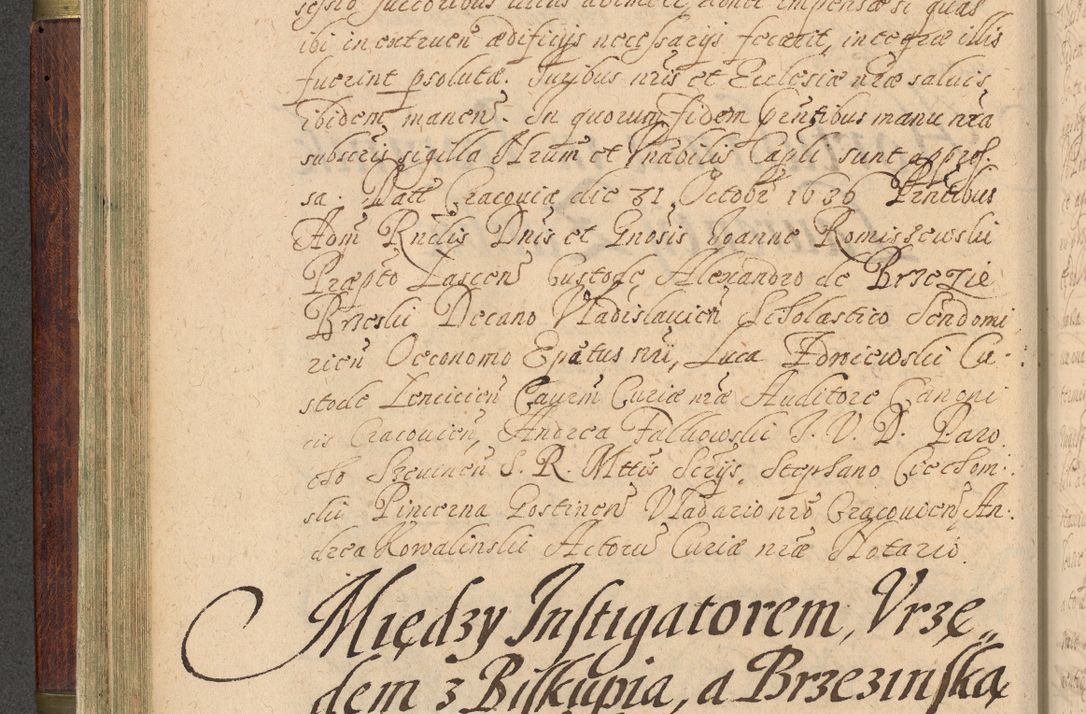 ibi in extruen ædificijs necessarijs fecerit, integræ illis
fuerint psolutæ. Juribus nris et Ecclesiæ nræ saluis
ibidem manen. In quorum fidem Pntibus manu nra
subscris sigilla Nrum et Vnabilis Capli sunt appres
sa. Datt Cracouiæ die 31 Octobr 1636 Pntibus
Adm Rndis Dnis et Gnosis Joanne Romiszewski
Præpto Lascen Custode Alexandro de Brzezie
Brzeski Decano Vladislauien Scholastico Sendomi
rien Oeconomo Epatus nri, Luca Dowiewski Cu-
stode Lencicien Caurm Curiæ nræ Auditore Canoni
cis Cracouien, Andrea Falkowski J. V. D. Paro
cho Szeuinen S. R. Mttis Scrijs, Stephano Ciechom-
ski Pincerna Gostinen Vladario nro Cracouien, An-
drea Kowalinski Actoru Curiæ nræ Notario
Między Instigatorem, Vrzę„
dem z Biskupia, a Brzezinską